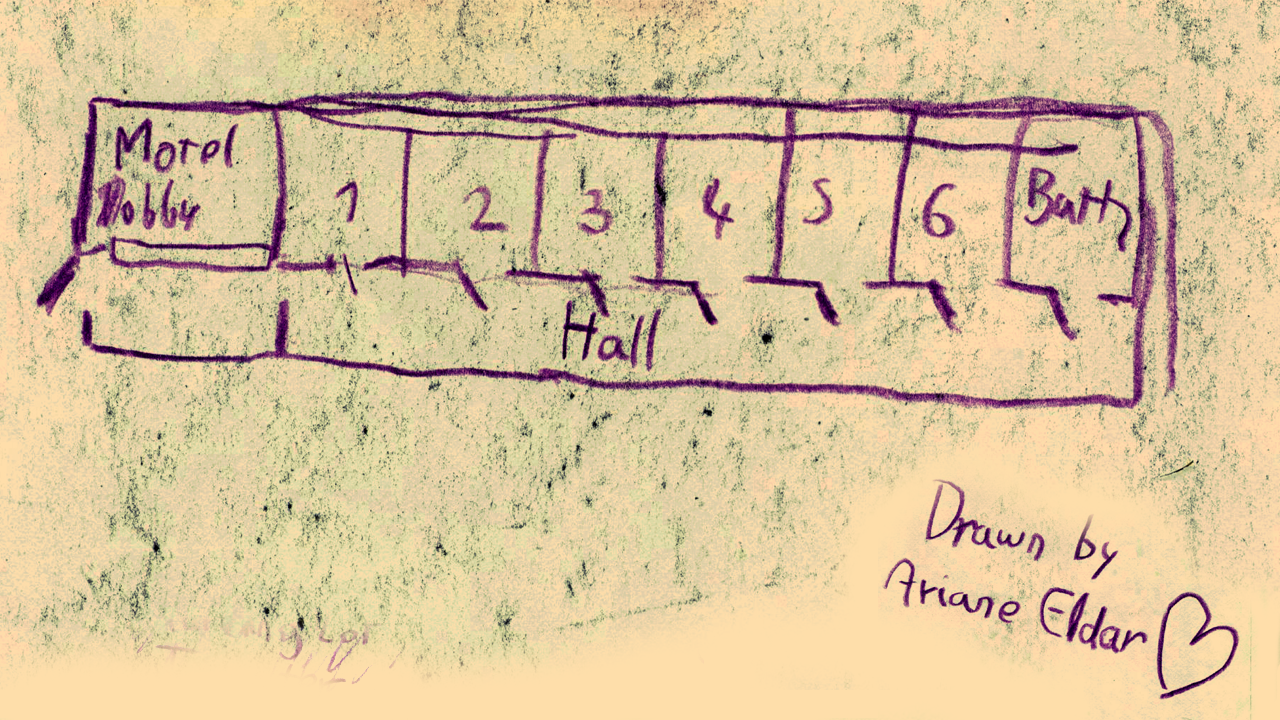 Motel
Lobby
1 2 3 4 5 6 Bath
Hall
Drawn by
Ariane Eldar